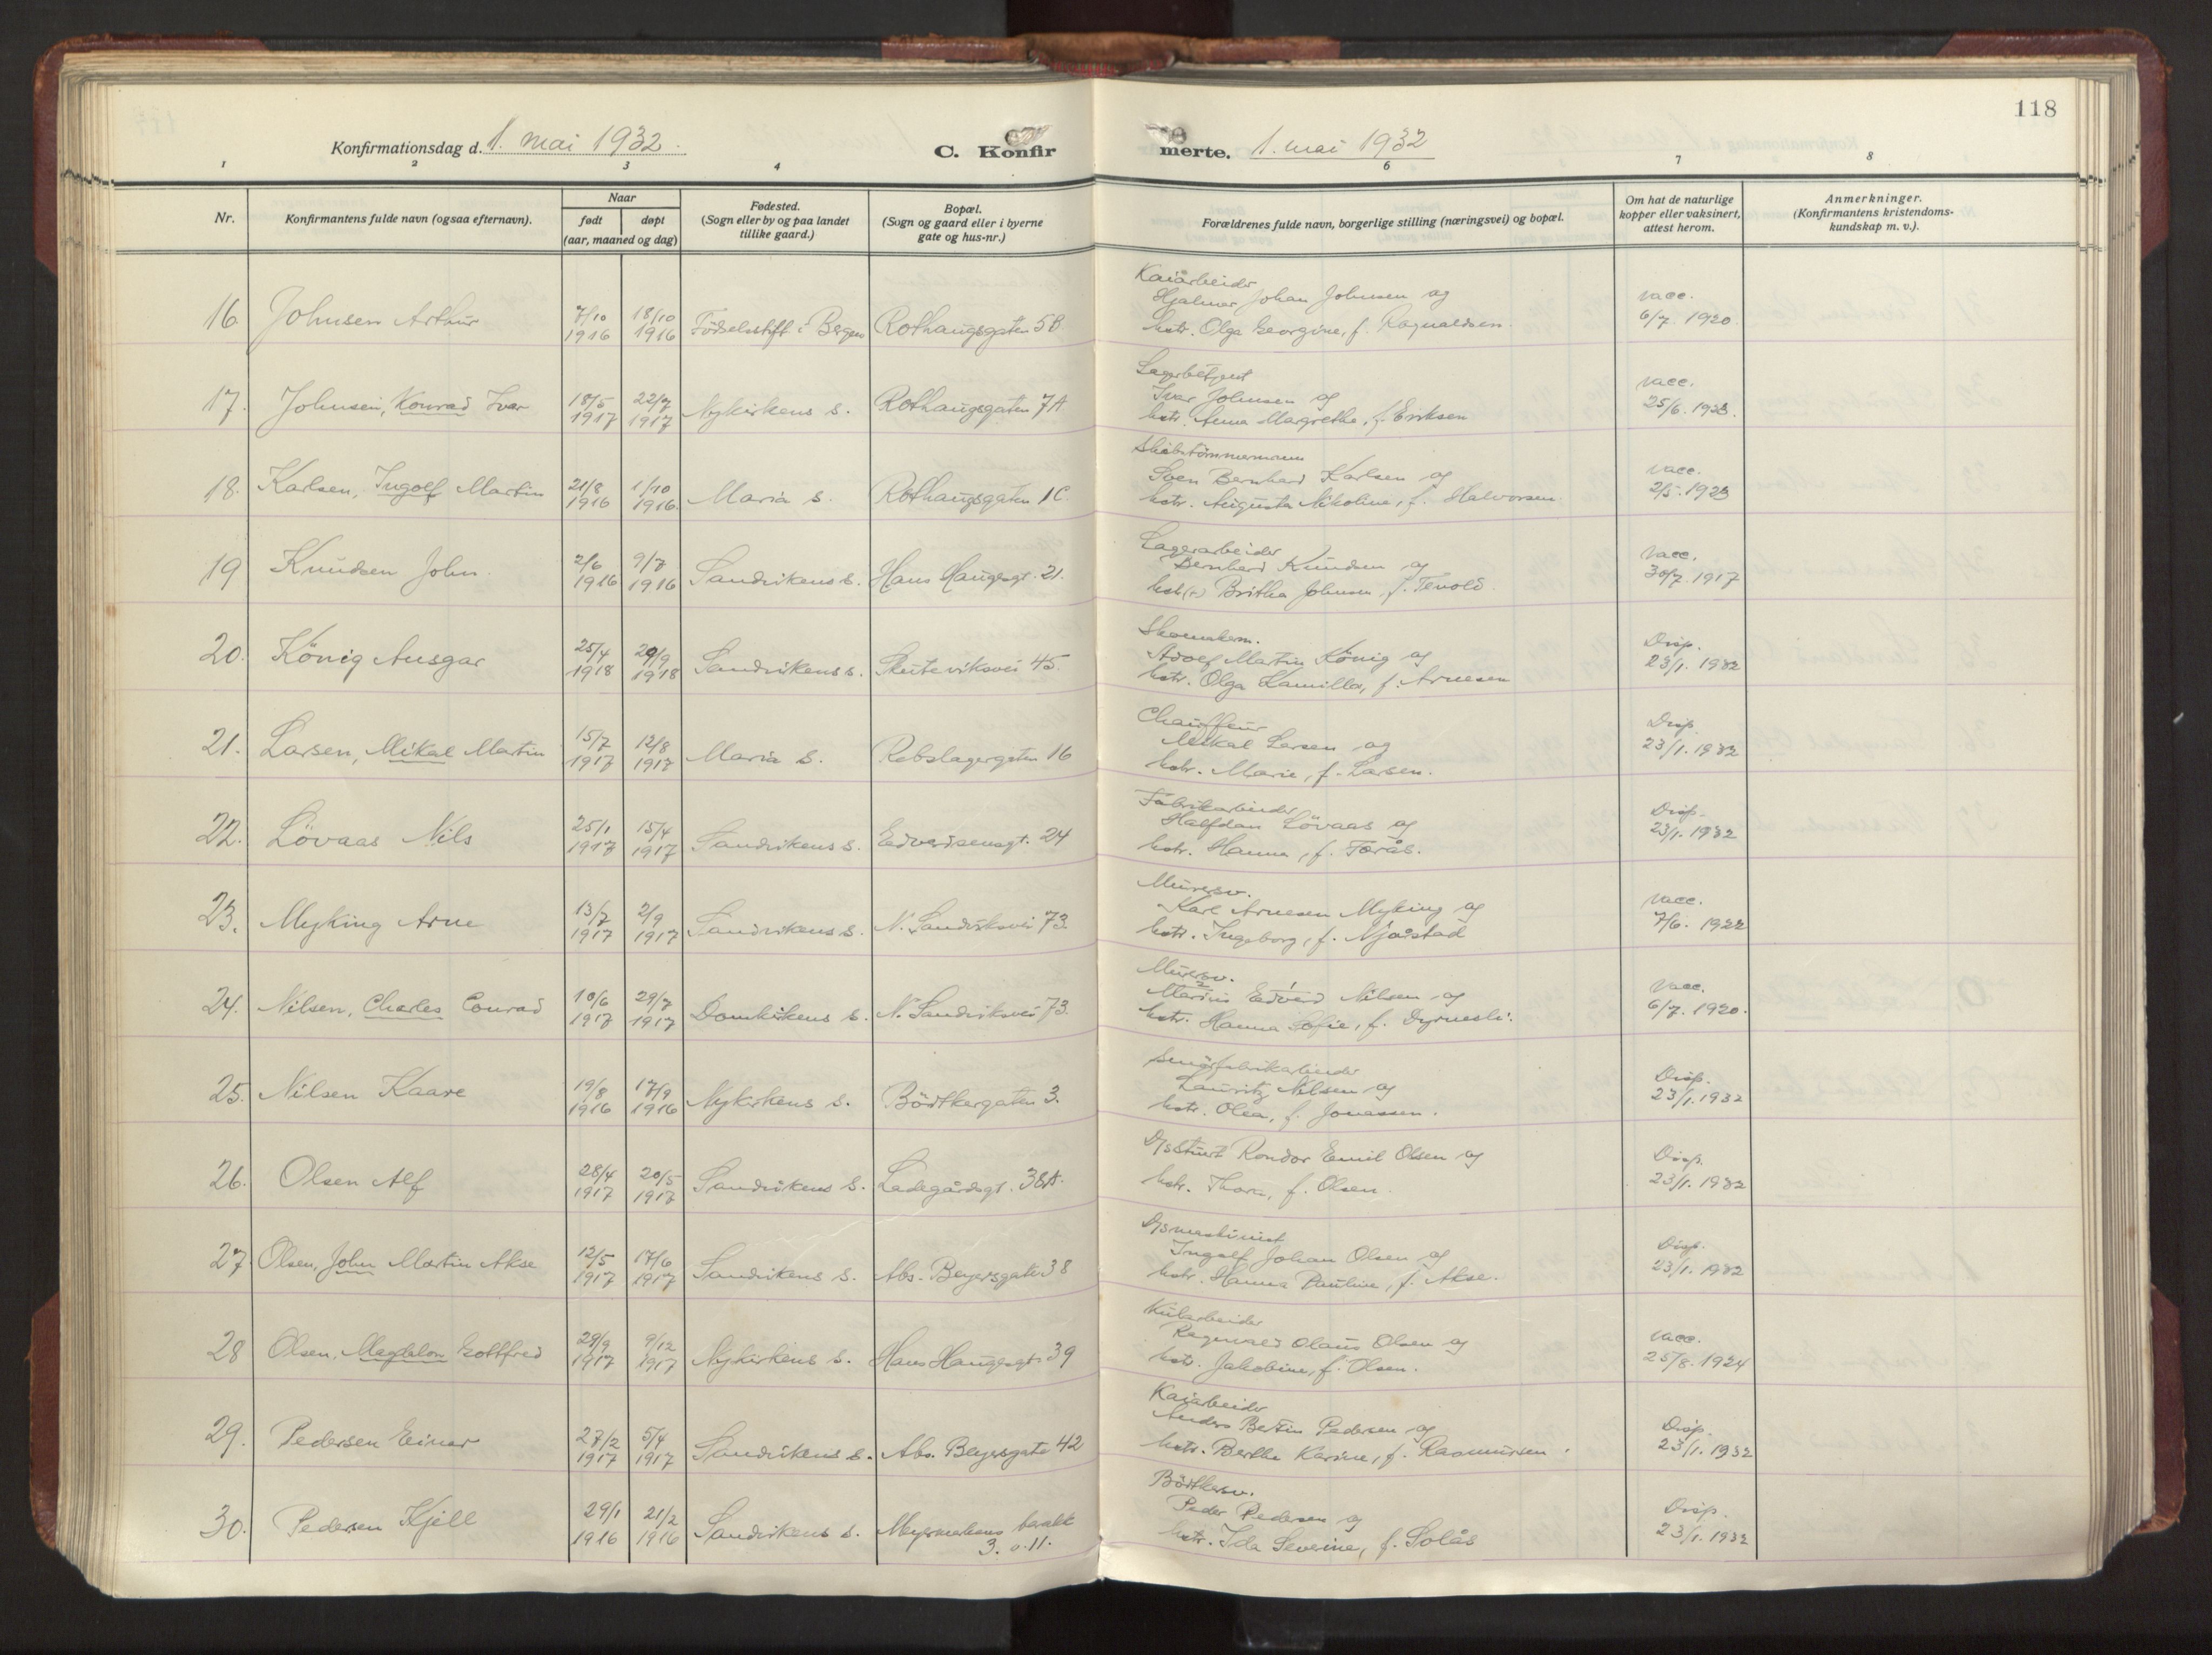 118
Konfirmationsdag d. 1. mai 1932.
C. Konfirmerte. 1. mai 1932
1 2 3 4 6 7 8
Nr.
Konfirmantens fulde navn (ogsaa efternavn).
Naar
født døpt
(aar, maaned og dag)
Fødested.
(Sogn eller by og paa landet
tillike gaard.)
Bopæl.
(Sogn og gaard eller i byerne
gate og hus-nr.)
Forældrenes fulde navn, borgerlige stilling (næringsvei) og bopæl.
Om hat de naturlige
kopper eller vaksinert,
attest herom.
Anmerkninger.
(Konfirmantens kristendoms-
kundskap m. v.).
16. Johnsen Arthur 7/10 1916 18/10 1916 Födselsstift. i Bergen Rothaugsgaten 5B
Kaiarbeider
Hjalmar Johan Johnsen og
hstr. Olga Georgine, f. Ragnvaldsen.
vacc.
6/7. 1920.
17. Johnsen, Konrad Ivar 18/5 1917 22/7 1917 Nykirkens s. Rothaugsgaten 7A.
Lagerbetjent
Ivar Johnsen og
hstr. Anna Margrethe, f. Eriksen
vacc.
25/6. 1923.
18. Karlsen, Ingolf Martin 21/8 1916 1/10 1916. Maria s. Rothaugsgaten 1C.
Skibstömmermann
Sven Bernhard Karlsen og
hstr. Augusta Nikoline, f. Halvorsen.
vacc.
2/5. 1923
19 Knudsen John. 2/6 1916 9/7 1916 Sandvikens s. Hans Haugesgt. 21.
Lagerarbeider
Bernhard Knudsen og
hstr(+) Britha Johnsen, f. Tenold.
vacc.
30/7. 1917
20. König Ansgar 25/4 1918 29/9 1918 Sandvikens s. Skuteviksvei 45.
Skomakerm.
Adolf Martin König og
hstr. Olga Kamilla, f. Arnesen
Disp.
23/1. 1932
21. Larsen, Mikal Martin 15/7 1917 12/8 1917 Maria s. Rebslagergaten 16
Chauffeur
Mikal Larsen og
hstr. Marie, f. Larsen.
Disp.
23/1. 1932
22. Lövaas Nils 25/1 1917 15/4 1917 Sandvikens s. Edvardsensgt. 24
Fabrikarbeider
Halfdan Lövaas og
hstr. Hanna, f. Torås.
Disp.
23/1. 1932
23. Myking Arne 13/7 1917 2/9 1917 Sandvikens s. N. Sandviksvei 73.
Murersv.
Karl Arnesen Myking og
hstr. Ingeborg, f. Njåstad
vacc.
7/6. 1922
24. Nilsen, Charles Conrad 10/6 1917 29/7 1917 Domkirkens s. N. Sandviksvei 73.
Murersv.
Marius Edvard Nilsen og
hstr. Hanna Sofie, f. Dyrnesli.
vacc.
6/7. 1920.
25. Nilsen Kaare 19/8 1916 17/9 1916 Nykirkens s. Bödtkergaten 3.
Smörfabrikarbeider
Lauritz Nilsen og
hstr. Olea, f. Jonassen.
Disp.
23/1. 1932
26. Olsen Alf 28/4 1917 20/5 1917 Sandvikens s. Ladegårdsgt. 38A.
D/sstuert Rondor Emil Olsen og
hstr. Thora, f. Olsen.
Disp.
23/1. 1932
27 Olsen, John Martin Akse 12/5 1917 17/6 1917 Sandvikens s. Abs. Beyersgate 38
D/smaskinist
Ingolf Johan Olsen og
hstr. Hanna Pauline, f. Akse.
Disp.
23/1. 1932
28 Olsen, Magdalon Gottfred 29/9 1917 9/12 1917 Nykirkens s. Hans Haugesgt. 39
Kularbeider
Ragnvald Olaus Olsen og
hstr. Jakobine, f. Olsen.
vacc.
25/8. 1924
29. Pedersen Einar 27/2 1917 5/4 1917 Sandvikens s. Abs. Beyersgate 42
Kaiarbeider
Anders Bertin Pedersen og
hstr. Berthe Karine, f. Rasmussen.
Disp.
23/1. 1932
30. Pedersen Kjell 29/1 1916 21/2 1916 Sandvikens s. Meyermarkens barakk
3. o. 11.
Bödtkersv.
Peder Pedersen og
hstr. Ida Severine, f. Solås
Disp.
23/1. 1932